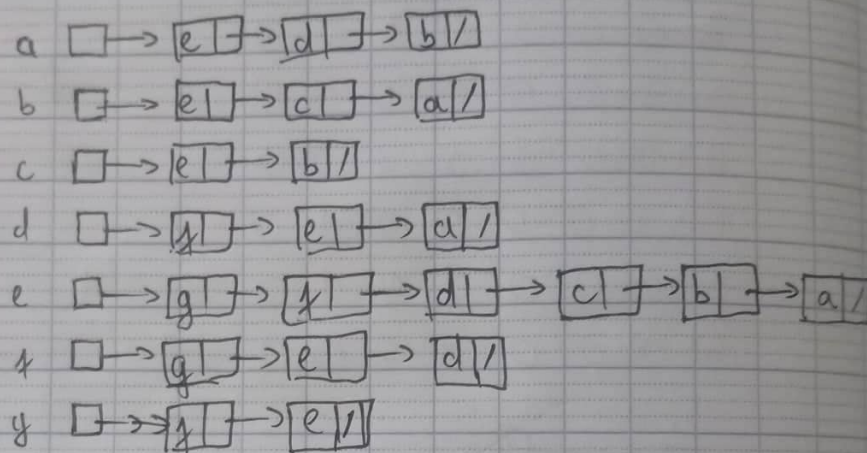 a □ → e → d → b /
b □ → e → c → a /
c □ → e → b /
d □ → f → e → a /
e □ → g → f → d → c → b → a /
f □ → g → e → d /
g □ → f → e /